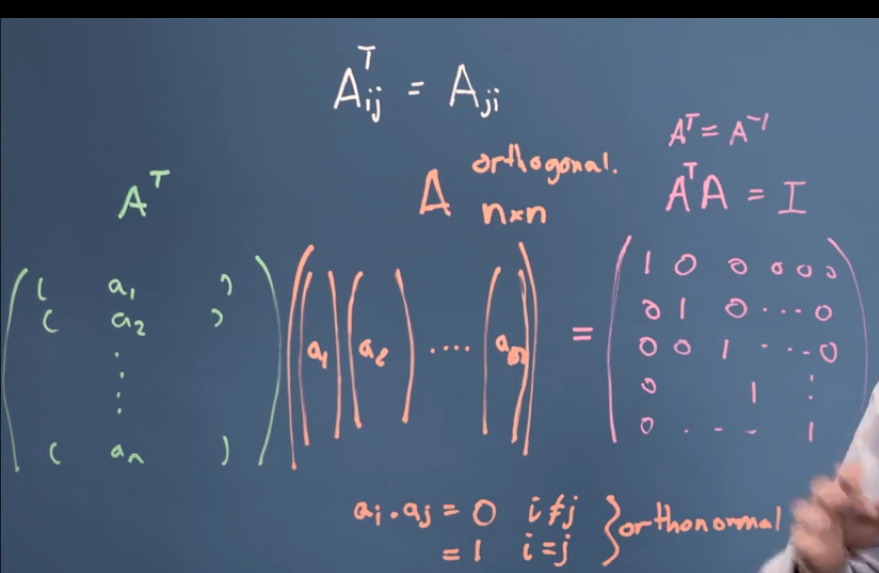 Aᵀij = Aji
Aᵀ = A⁻¹
orthogonal.
Aᵀ
A n×n
AᵀA = I
( a₁ )
( a₂ )
⋮
( aₙ )
( a₁ ) ( a₂ ) .... ( aₙ )
=
1 0 0 0 0 0
0 1 0 ... 0
0 0 1 ... 0
0 1 ⋮
0 . - - 1
aᵢ . aⱼ = 0 i ≠ j
= 1 i = j
} orthonormal